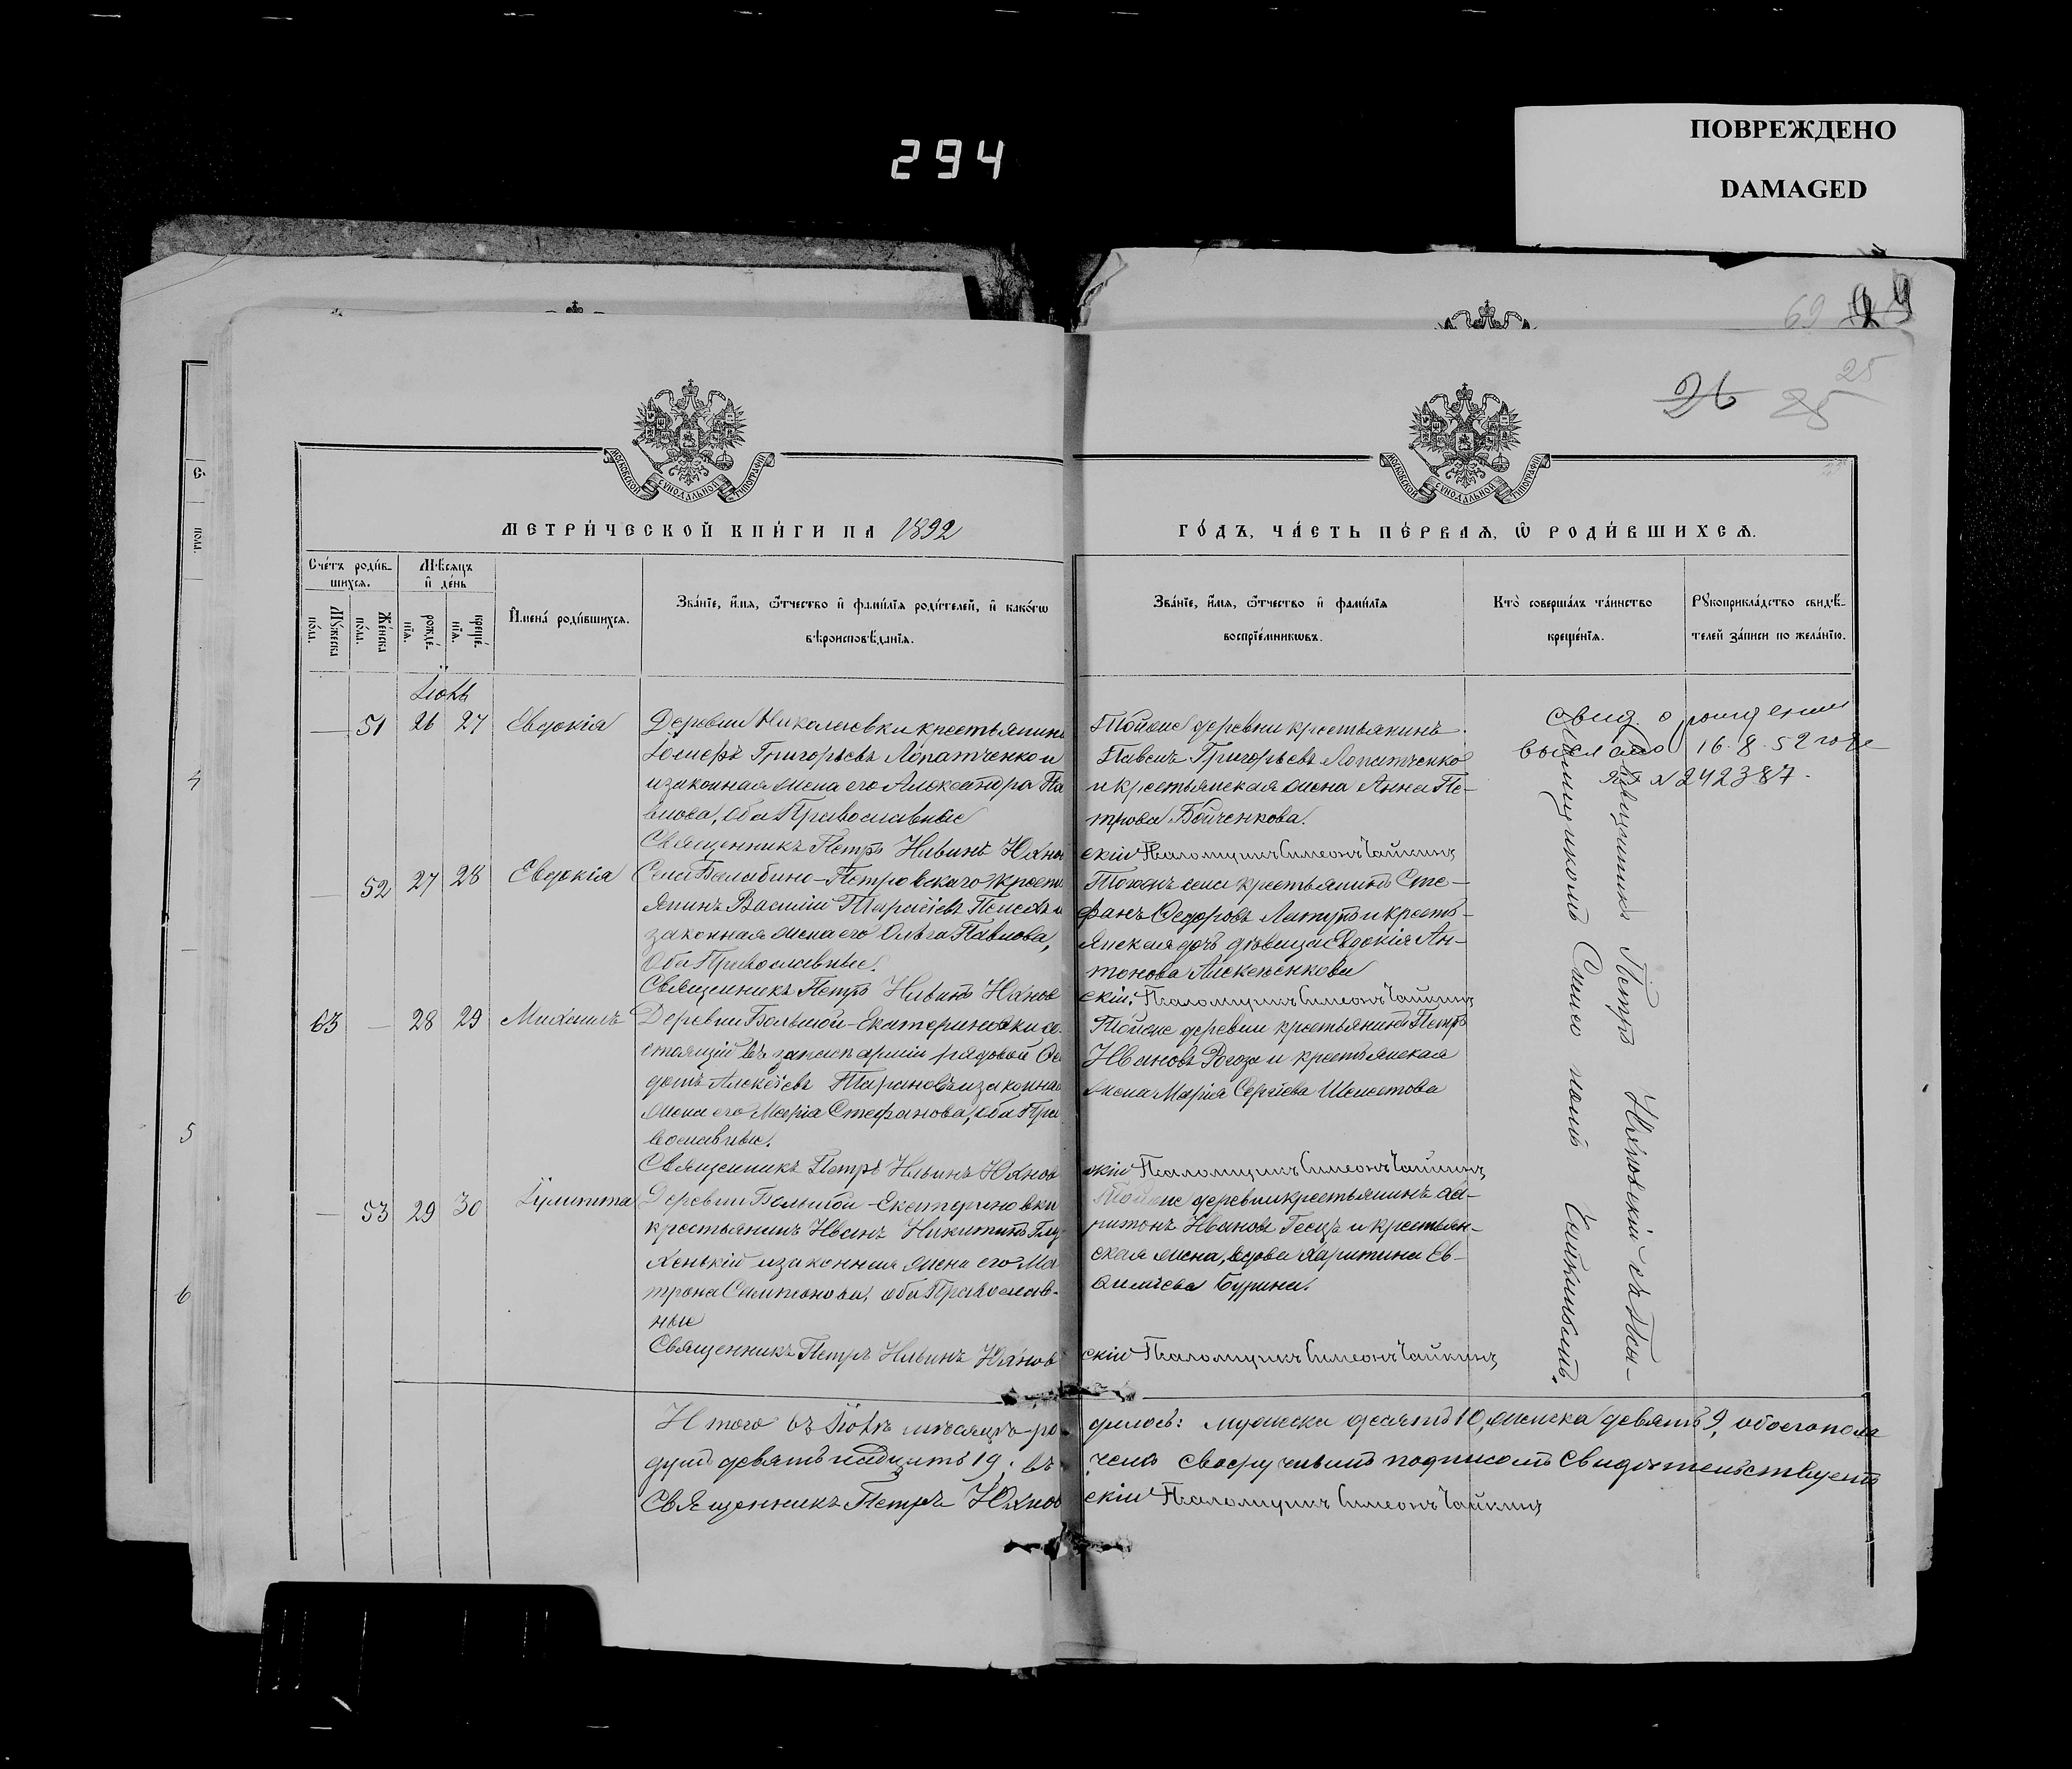 294
ПОВРЕЖДЕНО
DAMAGED
69
29
26 25
25
МОСКОВСКОЙ СѴНОДАЛЬНОЙ ТИПОГРАФІИ
МОСКОВСКОЙ СѴНОДАЛЬНОЙ ТИПОГРАФІИ
МЕТРИ́ЧЕСКОЙ КНИ́ГИ НА 1892
ГО́ДЪ, ЧА́СТЬ ПЕ́РВАѦ, Ѿ РОДИ́ВШИХСѦ.
Сче́тъ роди́в-
шихся.
Мꙋ́жеска по́ла.
Же́нска по́ла.
Мѣ́сяцъ
и҆ де́нь
рожде́-
нїя.
креще́-
нїя.
И҆мена̀ роди́вшихся.
Зва́нїе, и҆́мя, ѻ҆́тчество и҆ фами́лїя роди́телей, и҆ како́гѡ
вѣроисповѣ́данїя.
Зва́нїе, и҆́мя, ѻ҆́тчество и҆ фами́лїя
воспрїе́мникѡвъ.
Кто̀ соверша́лъ та́инство
креще́нїя.
Рꙋкоприкла́дство свидѣ́-
телей за́писи по жела́нїю.
Іюнь
— 51 26 27 Евдокія
Деревни Николаевки крестьянинъ
Іосифъ Григорьевъ Лопатченко и
и законная жена его Александра Па
влова, оба Православные
Священникъ Петръ Ильинъ Юхнов
Тойже деревни крестьянинъ
Павелъ Григорьевъ Лопатченко
и крестьянская жена Анна Пе-
трова Бойченкова.
скій Псаломщикъ Симеонъ Чайкинъ
свид. о рождении
выслано 16.8.52 года
ЯП № 242387.
— 52 27 28 Евдокія
Села Балабино-Петровскаго крестья
янинъ Василій Тарасіевъ и
законная жена его Ольга Павлова,
Оба Православные.
Священникъ Петръ Ильинъ Юхнов
Тогожъ села крестьянинъ Сте-
фанъ Ѳедоровъ и кресть-
янская дочь дѣвица Евдокія Ан-
тонова
скій. Псаломщикъ Симеонъ Чайкинъ
63 — 28 29 Михаилъ
Деревни Большой-Екатериновки со-
стоящій въ запасѣ арміи рядовой Ѳе
дотъ Алексѣевъ Тарановъ и законная
жена его Марія Стефанова, оба Пра
вославные.
Священникъ Петръ Ильинъ Юхнов
Тойже деревни крестьянинъ Петръ
Ивановъ Рогоза и крестьянская
жена Марія Сергѣева Шелестова
скій Псаломщикъ Симеонъ Чайкинъ
— 53 29 30 Іулитта
Деревни Большой-Екатериновки
крестьянинъ Иванъ Никитинъ Глу
хенькій и законная жена его Ма
трона Сампсонова, оба Православ-
ные
Священникъ Петръ Ильинъ Юхнов
Тойже деревни крестьянинъ Ха-
ритонъ Ивановъ и крестьян-
ская жена, вдова Харитина Ев-
Бурина.
скій Псаломщикъ Симеонъ Чайкинъ
Священникъ Петръ Юхновскій съ Пса-
ломщикомъ Симеономъ Чайкинымъ.
Итого въ Іюнѣ мѣсяцѣ ро
дилось: мужеска десять 10, женска девять 9, обоего пола
душъ девятьнадцать 19; въ
чемъ своеручнымъ подписомъ свидѣтельствуетъ
Священникъ Петръ Юхнов
скій Псаломщикъ Симеонъ Чайкинъ
4
5
6